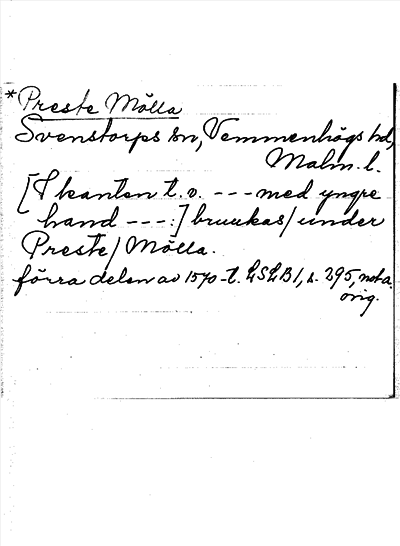 *Preste Mölla
Svenstorps sn, Vemmenhögs hd,
Malm. l.
[I kanten t. v. --- med yngre
hand ---:] bruukas/under
Preste/Mölla.
förra delen av 1570-t. LSLB1, s. 295, nota.
orig.